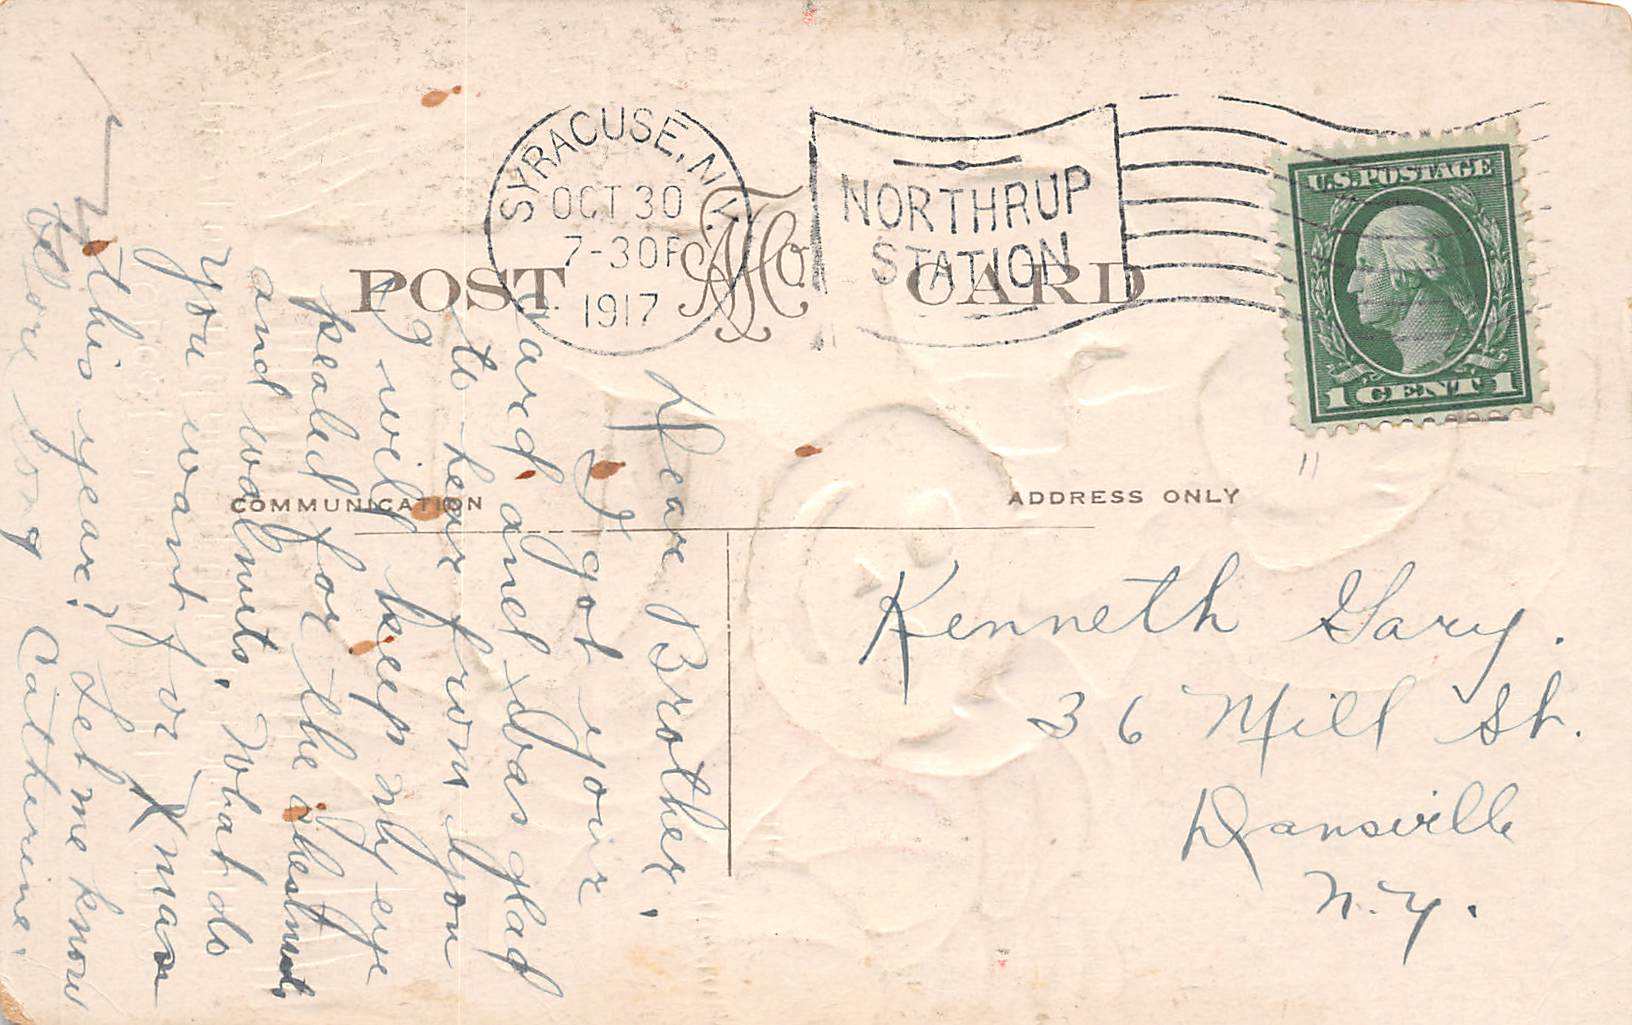 SYRACUSE, N.Y.
OCT 30
7-30P
1917
NORTHRUP
STATION
U.S. POSTAGE
1 CENT 1
POST CARD
COMMUNICATION
ADDRESS ONLY
Kenneth Gary.
36 Mill St.
Dansville
N.Y.
Dear Brother.
I got your
card and was glad
to hear from you
I will keep my eye
pealed for the chestnuts
and walnuts. What do
you want for Xmas
this year? Let me know
before long
Catherine.